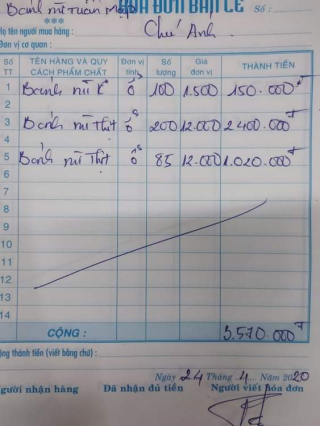 Bánh mì Tuấn Mập HÓA ĐƠN BÁN LẺ Số :
***
Họ tên người mua hàng : Chú Anh
Đơn vị cơ quan :
Số TT TÊN HÀNG VÀ QUY CÁCH PHẨM CHẤT Đơn vị tính Số lượng Giá đơn vị THÀNH TIỀN
1 Bánh mì K ổ 100 1.500 150.000đ
2
3 Bánh mì Thịt ổ 200 12.000 2.400.000đ
4
5 Bánh mì Thịt ổ 85 12.000 1.020.000đ
6
7
8
9
10
11
12
13
14
CỘNG : 3.570.000đ
Cộng thành tiền (viết bằng chữ) :
Ngày 24 Tháng 4 Năm 2020
Người nhận hàng Đã nhận đủ tiền Người viết hóa đơn